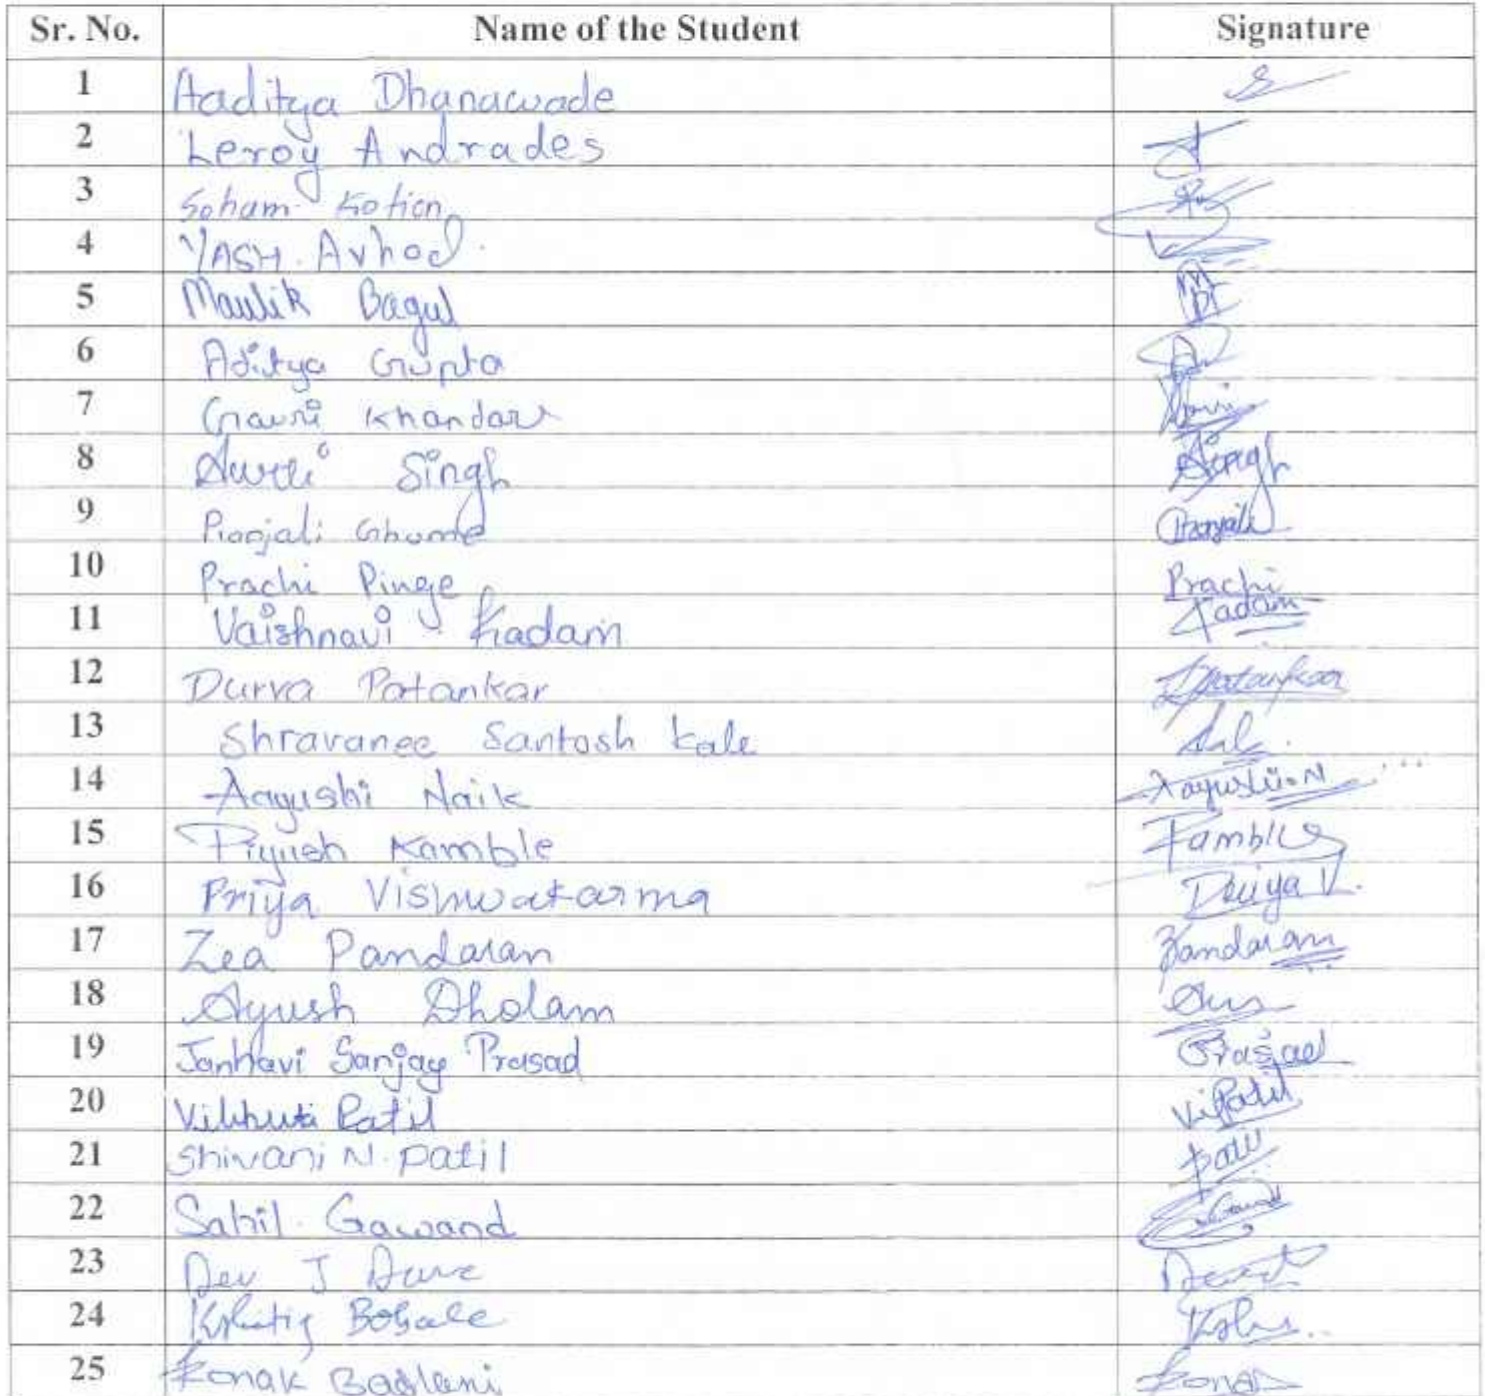 Sr. No. Name of the Student Signature
1 Aaditya Dhanawade
2 Leroy Andrades
3 Soham Kotian
4 YASH. Avhad.
5 Maulik Bagul
6 Aditya Gupta
7 Gauri Khandare
8 Singh Singh
9 Pranjali Ghume Pranjali
10 Prachi Pinge Prachi
11 Vaishnavi Kadam Kadam
12 Durva Patankar DPatankar
13 Shravanee Santosh Kale
14 Aayushi Naik Aayushi.N
15 Piyush Kamble Kamble
16 Priya Vishwakarma Priya V.
17 Zea Pandaran Pandaran
18 Ayush Dholam
19 Janhavi Sanjay Prasad Prasad
20 Vibhuti Patil V.Patil
21 Shivani N. Patil Patil
22 Sahil. Gawand
23 Dev J Dave
24 Kshitij
25 Ronak